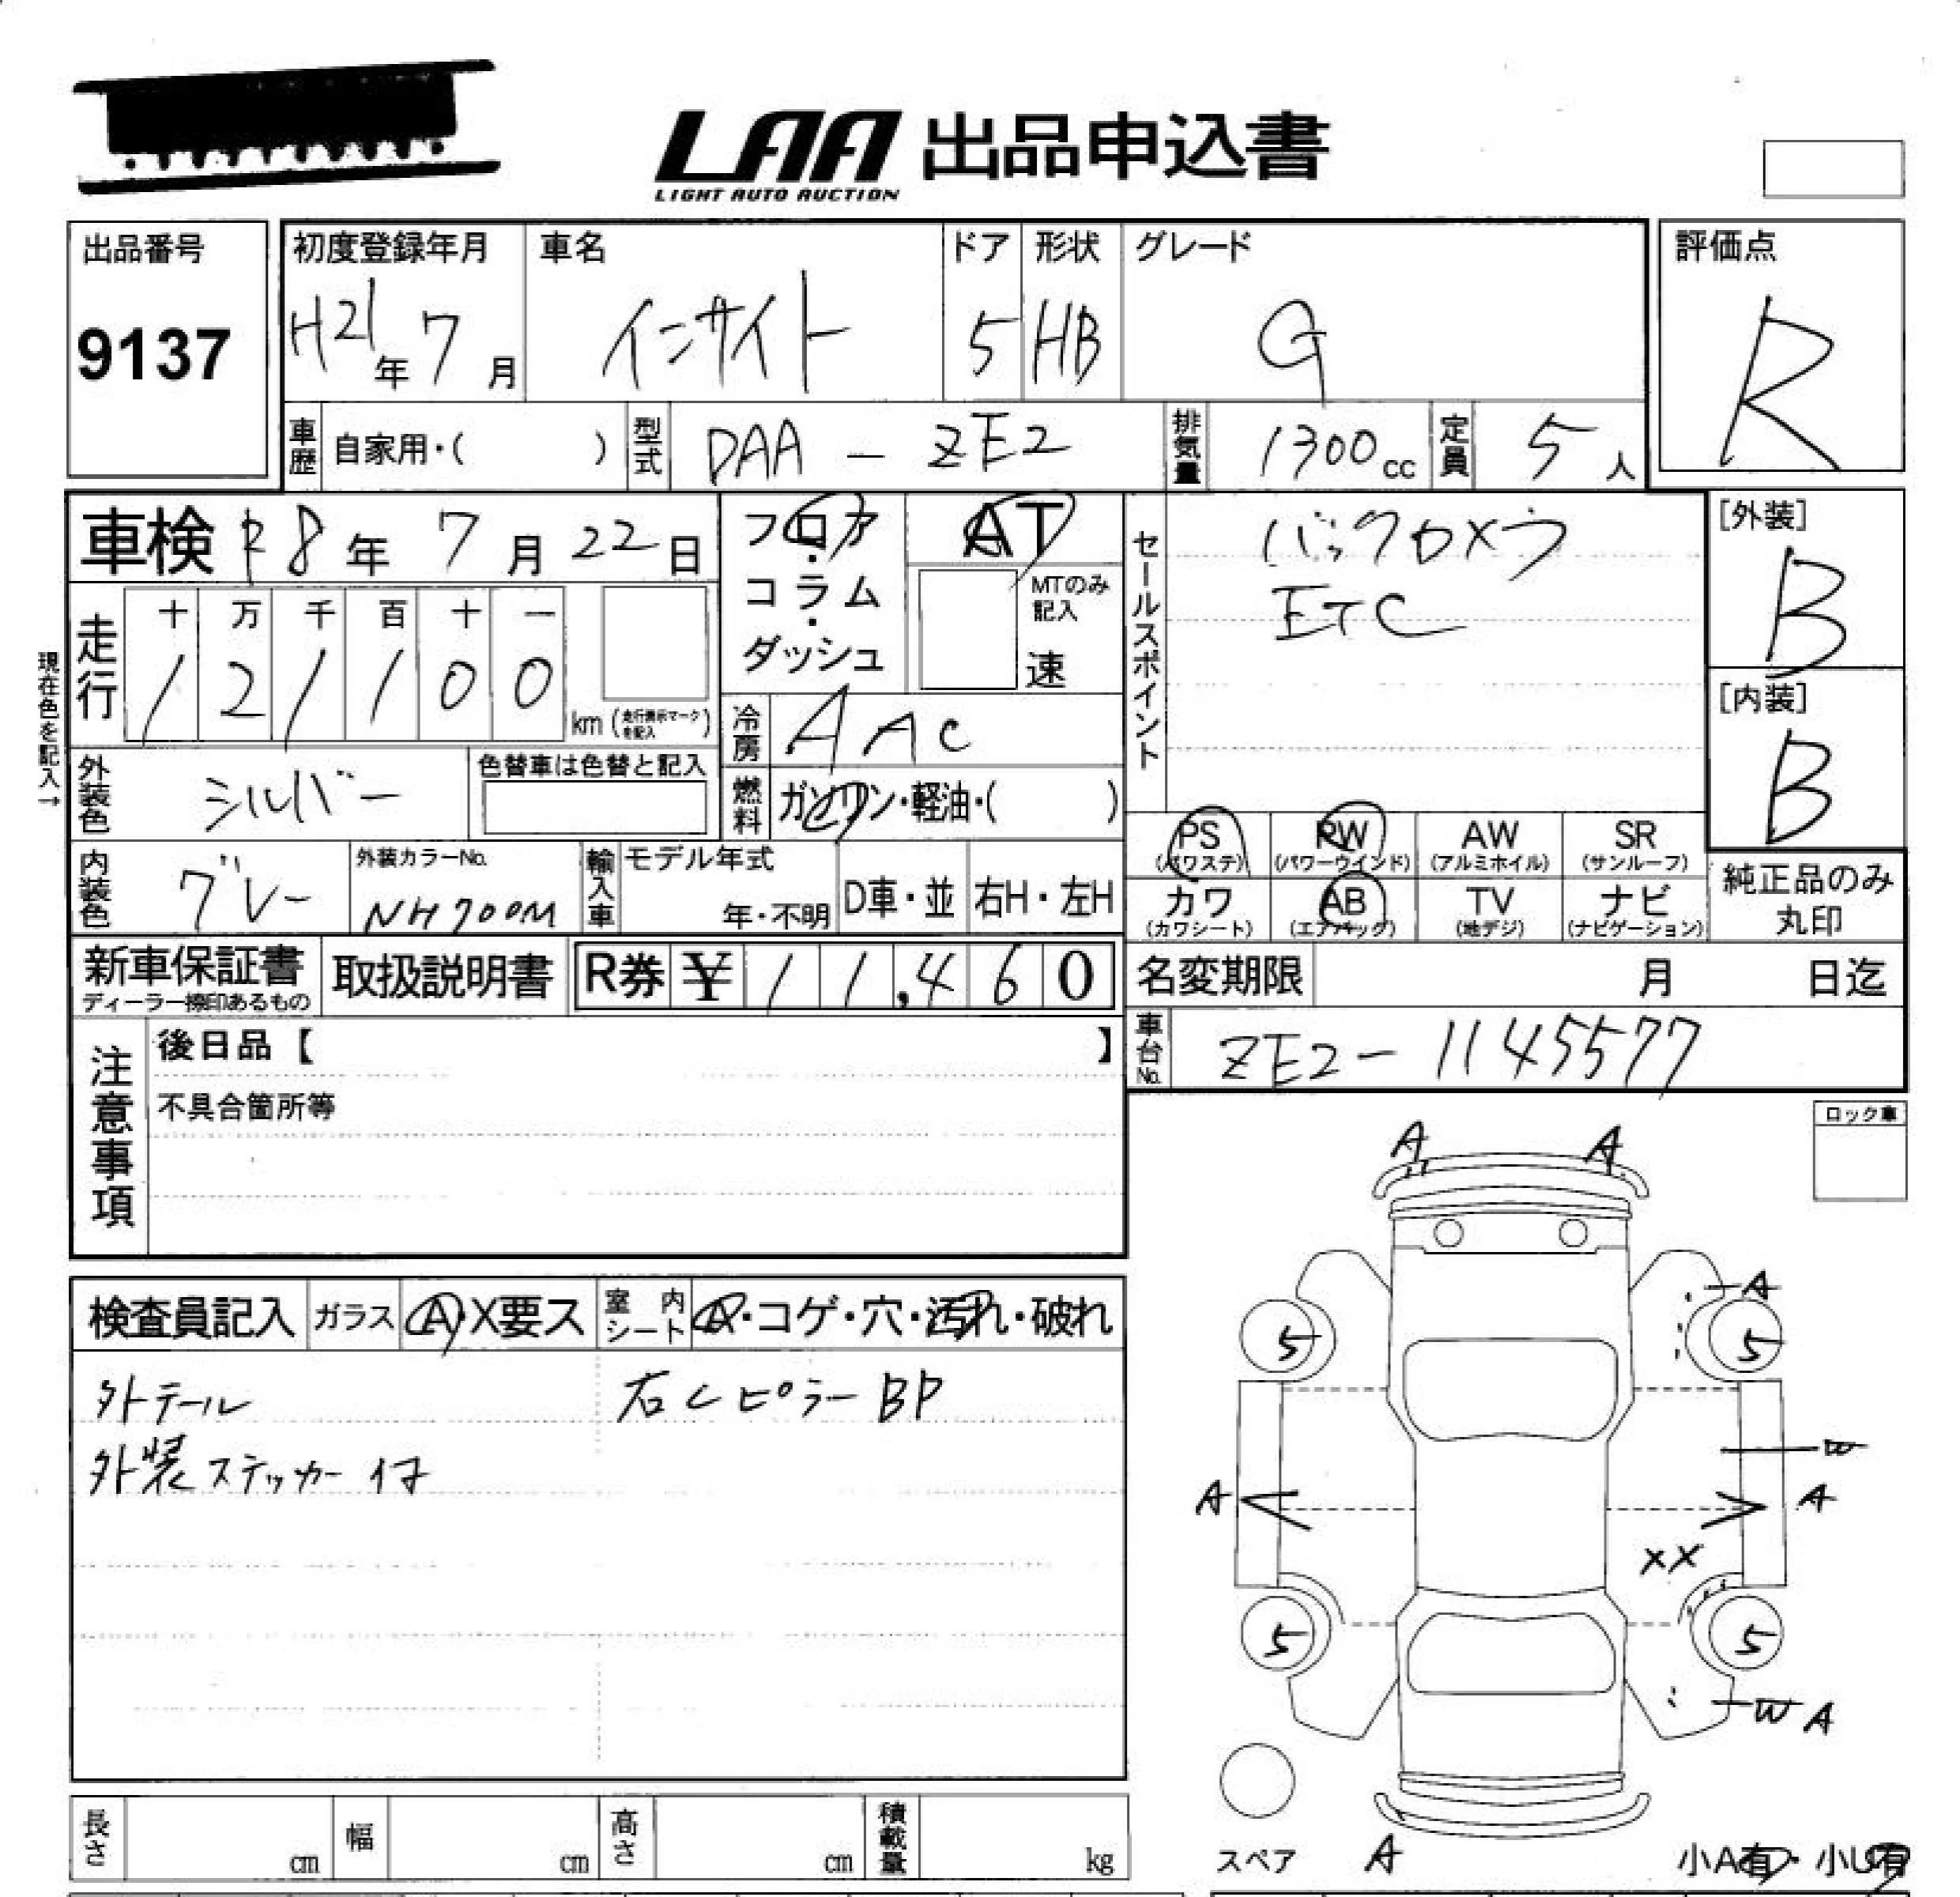 LAA 出品申込書
LIGHT AUTO AUCTION
出品番号
9137
初度登録年月
H21年7月
車名
インサイト
ドア
5
形状
HB
グレード
G
評価点
R
車歴 自家用・( )
型式 DAA - ZE2
排気量 1300cc
定員 5人
車検 R8年7月22日
フロア・コラム・ダッシュ
AT
MTのみ記入
速
セールスポイント
バックカメラ
ETC
[外装]
B
[内装]
B
現在色を記入→
走行
十 万 千 百 十 一
1 2 1 1 0 0
km(走行表示マークを記入)
冷房 AAC
外装色 シルバー
色替車は色替と記入
燃料 ガソリン・軽油・( )
PS (パワステ)
PW (パワーウインド)
AW (アルミホイル)
SR (サンルーフ)
内装色 グレー
外装カラーNo.
NH700M
輸入車
モデル年式
年・不明
D車・並
右H・左H
カワ (カワシート)
AB (エアバック)
TV (地デジ)
ナビ (ナビゲーション)
純正品のみ
丸印
新車保証書
ディーラー捺印あるもの
取扱説明書
R券 ¥ 11,460
名変期限 月 日迄
車台No. ZE2-1145577
注意事項
後日品【 】
不具合箇所等
ロック車
検査員記入
ガラス A・X要ス
室内シート A・コゲ・穴・汚れ・破れ
外テール
右CピラーBP
外装ステッカー付
A A
A
5 5
W
A A
XX
5 5
W A
スペア
A
小A有・小U有
長さ cm
幅 cm
高さ cm
積載量 kg